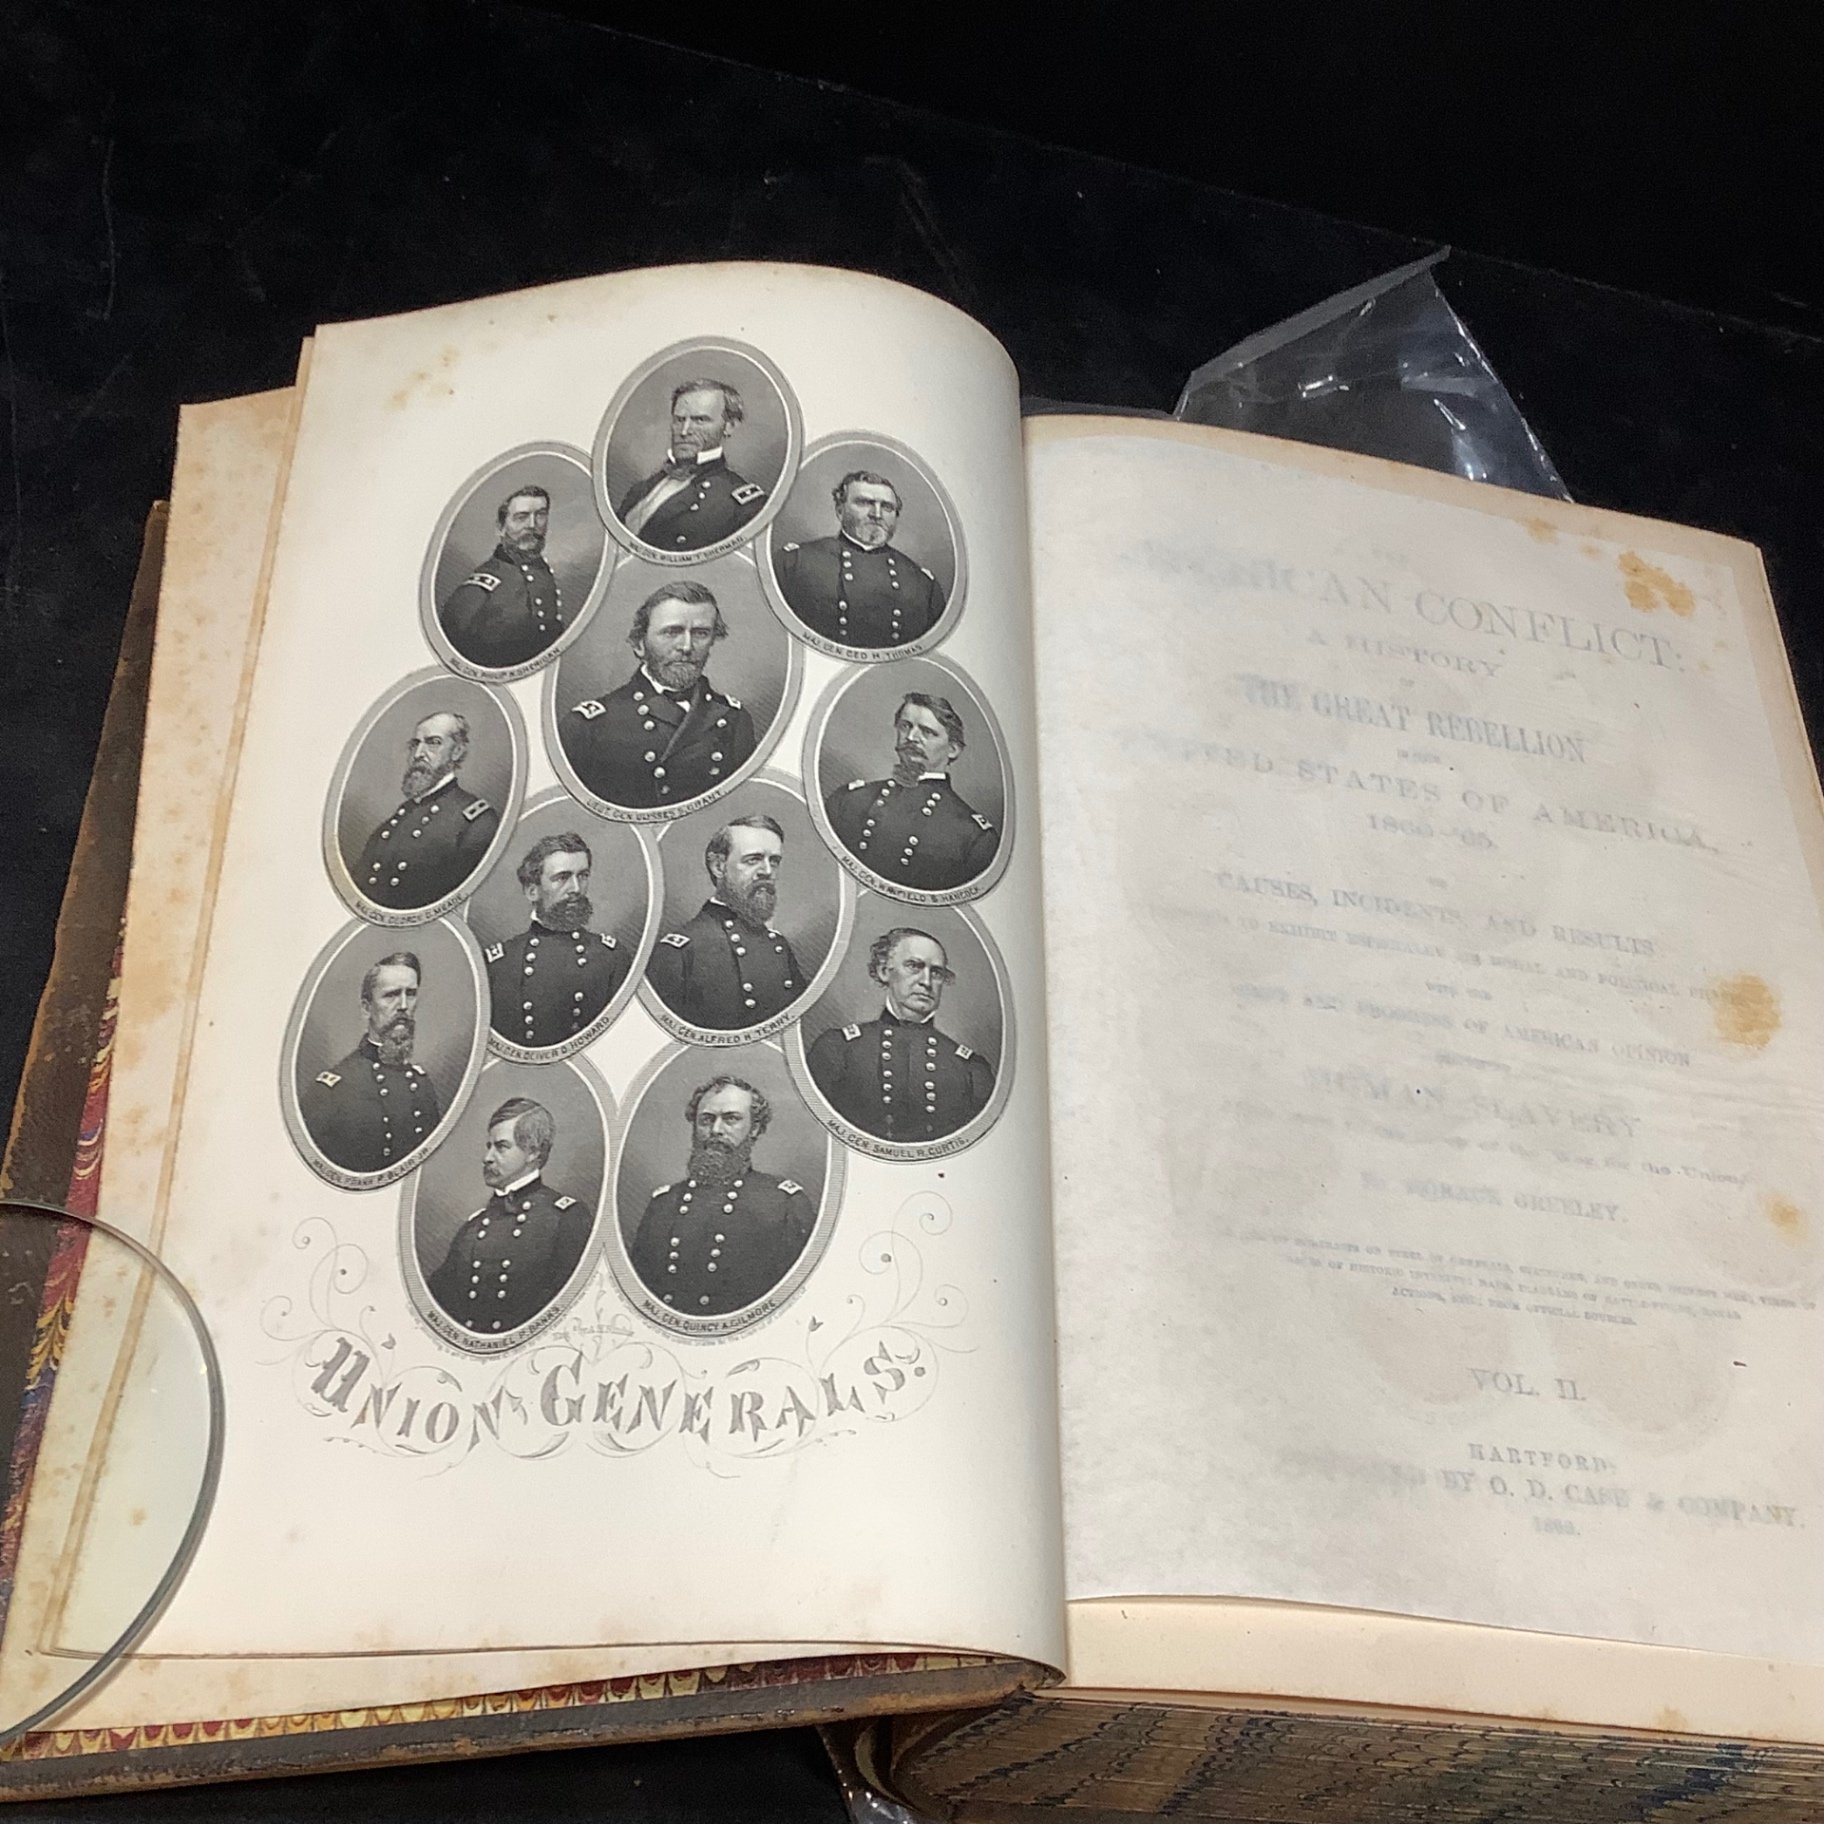 MAJ. GEN. WILLIAM T. SHERMAN.
MAJ. GEN. PHILIP H. SHERIDAN.
MAJ. GEN. GEO. H. THOMAS.
LIEUT. GEN. ULYSSES S. GRANT.
MAJ. GEN. GEORGE G. MEADE.
MAJ. GEN. WINFIELD S. HANCOCK.
MAJ. GEN. OLIVER O. HOWARD.
MAJ. GEN. ALFRED H. TERRY.
MAJ. GEN. FRANK P. BLAIR JR.
MAJ. GEN. SAMUEL R. CURTIS.
MAJ. GEN. NATHANIEL P. BANKS.
MAJ. GEN. QUINCY A. GILMORE.
UNION GENERALS.
AMERICAN CONFLICT:
A HISTORY
OF
THE GREAT REBELLION
IN THE
UNITED STATES OF AMERICA,
1860-'65.
CAUSES, INCIDENTS, AND RESULTS
TO EXHIBIT ESPECIALLY ITS MORAL AND POLITICAL PHASES
WITH THE
DRIFT AND PROGRESS OF AMERICAN OPINION
HUMAN SLAVERY
War for the Union
BY HORACE GREELEY.
VOL. II.
HARTFORD:
BY O. D. CASE & COMPANY.